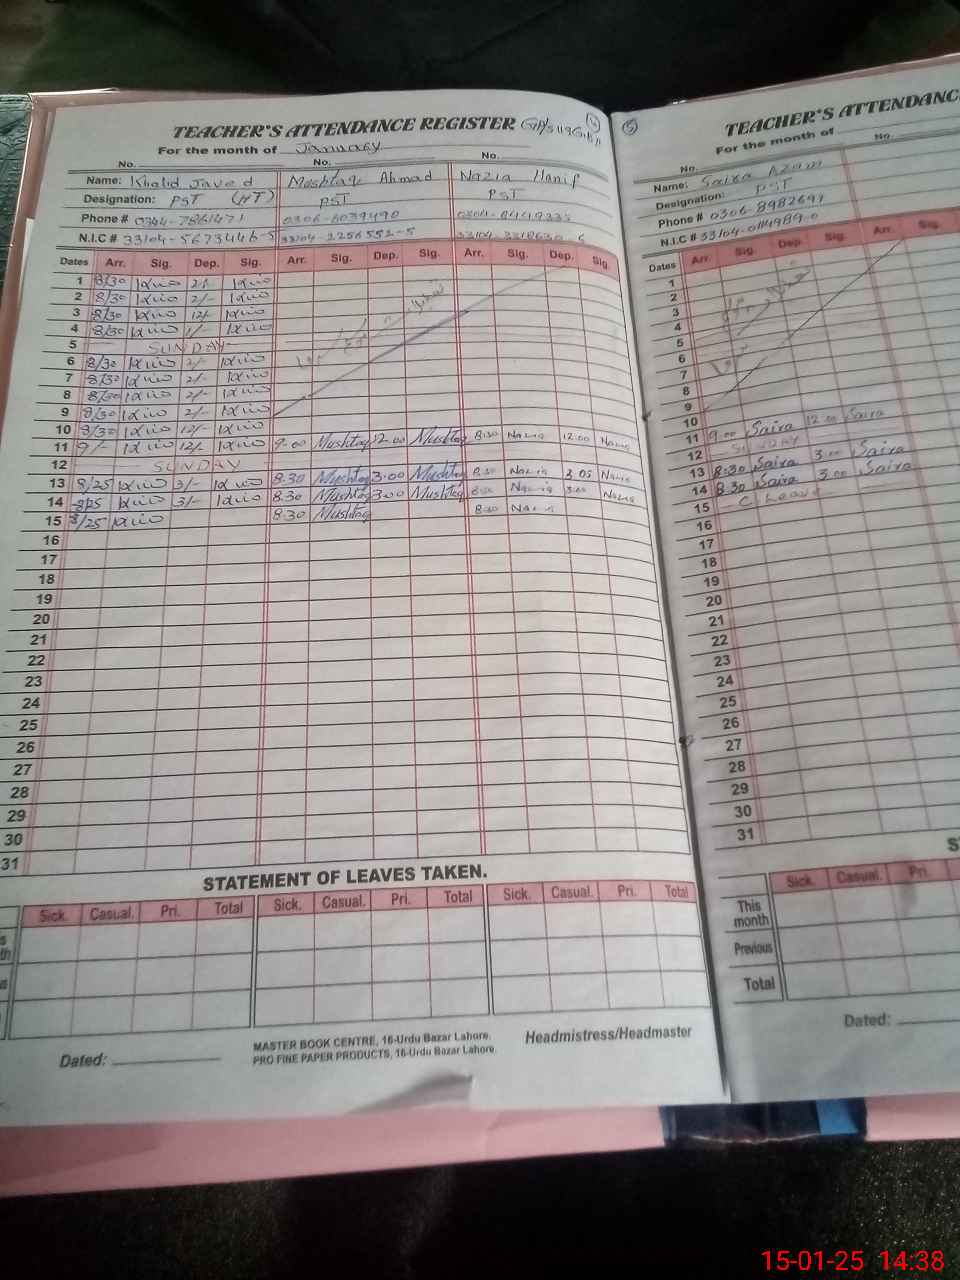 TEACHER'S ATTENDANCE REGISTER
For the month of January
No. No. No.
Name: Khalid Javed Mushtaq Ahmad Nazia Hanif
Designation: PST (HT) PST PST
Phone # 0344-7861471 0306-6039490
N.I.C # 33104-5673446-5 33104-2256552-5
Dates Arr. Sig. Dep. Sig. Arr. Sig. Dep. Sig. Arr. Sig. Dep. Sig.
1 8/30 2/-
2 8/30 2/-
3 8/30 12/-
4 8/30 1/-
5 SUNDAY
6 8/30 2/-
7 8/30 2/-
8 8/30 2/-
9 8/30 2/-
10 8/30 12/-
11 9/- 12/- 9.00 Mushtaq 12.00 Mushtaq 8:30 Nazia 12.00 Nazia
12 SUNDAY
13 8/25 3/- 8.30 Mushtaq 3.00 Mushtaq 8.30 Nazia 3.05 Nazia
14 8/25 3/- 8.30 Mushtaq 3.00 Mushtaq 8:30 Nazia 3.00 Nazia
15 8/25 8.30 Mushtaq 8.30 Nazia
16
17
18
19
20
21
22
23
24
25
26
27
28
29
30
31
STATEMENT OF LEAVES TAKEN.
Sick. Casual. Pri. Total Sick. Casual. Pri. Total Sick. Casual. Pri. Total
Dated:
MASTER BOOK CENTRE, 16-Urdu Bazar Lahore.
PRO FINE PAPER PRODUCTS, 16-Urdu Bazar Lahore.
Headmistress/Headmaster
5
TEACHER'S ATTENDANC
For the month of
No. No.
Name: Saira Azam
Designation: PST
Phone # 0306-8982691
N.I.C # 33104-0114989-0
Dates Arr. Sig. Dep. Sig. Arr. Sig.
1
2
3
4
5
6
7
8
9
10
11 9.00 Saira 12.00 Saira
12 SUNDAY
13 8:30 Saira 3.00 Saira
14 8.30 Saira 3.00 Saira
15 C. Leave
16
17
18
19
20
21
22
23
24
25
26
27
28
29
30
31
Sick. Casual. Pri.
This month
Previous
Total
Dated:
15-01-25 14:38